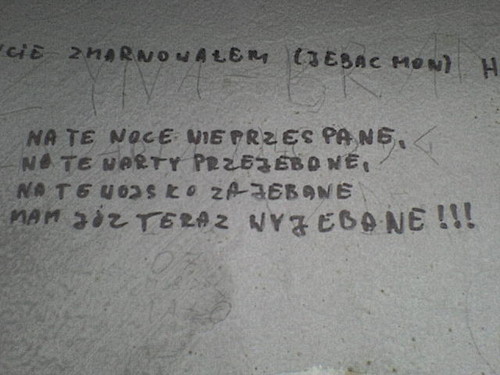 YCIE ZMARNOWAŁEM (JEBAC MON) H
NA TE NOCE NIEPRZESPANE,
NA TE WARTY PRZEJEBANE,
NA TE WOJSKO ZAJEBANE
MAM JÓŻ TERAZ WYJEBANE!!!